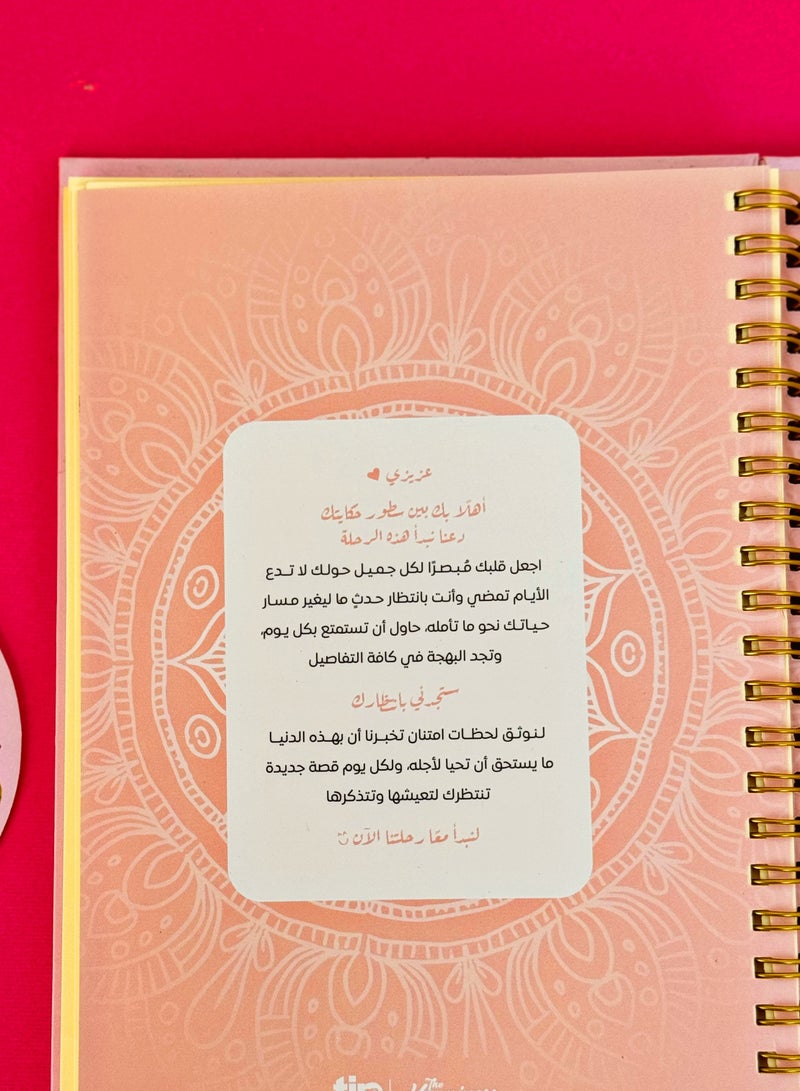 عزيزي ♥
أهلًا بك بين سطور حكايتك
دعنا نبدأ هذه الرحلة
اجعل قلبك مُبصرًا لكل جميل حولك لا تدع
الأيام تمضي وأنت بانتظار حدثٍ ما ليغير مسار
حياتك نحو ما تأمله، حاول أن تستمتع بكل يوم،
وتجد البهجة في كافة التفاصيل
ستجدني بانتظارك
لنوثق لحظات امتنان تخبرنا أن بهذه الدنيا
ما يستحق أن تحيا لأجله، ولكل يوم قصة جديدة
تنتظرك لتعيشها وتتذكرها
لنبدأ معًا رحلتنا الآن
The